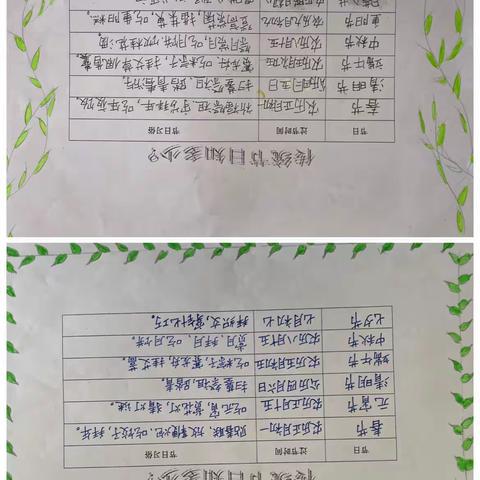 传统节日知多少?
节日 过节时间 节日习俗
春节 农历正月初一 祈福祭祖、守岁拜年、吃年夜饭。
清明节 公历四月五日 扫墓祭祖、踏青
端午节 农历五月初五 赛龙舟、吃粽子、挂艾草佩香囊。
中秋节 农历八月十五 祭月赏月、吃月饼、饮桂花酒。
重阳节 农历九月初九 插茱萸、吃重阳糕
传统节日知多少?
节日 过节时间 节日习俗
春节 农历正月初一 贴春联、放鞭炮、吃饺子、拜年。
元宵节 农历正月十五 吃元宵、赏花灯、猜灯谜。
清明节 公历四月六日 扫墓祭祖、踏青。
端午节 农历五月初五 吃粽子、赛龙舟、挂艾蒿。
中秋节 农历八月十五 赏月、拜月、吃月饼。
七夕节 七月初七 拜织女、穿针乞巧。